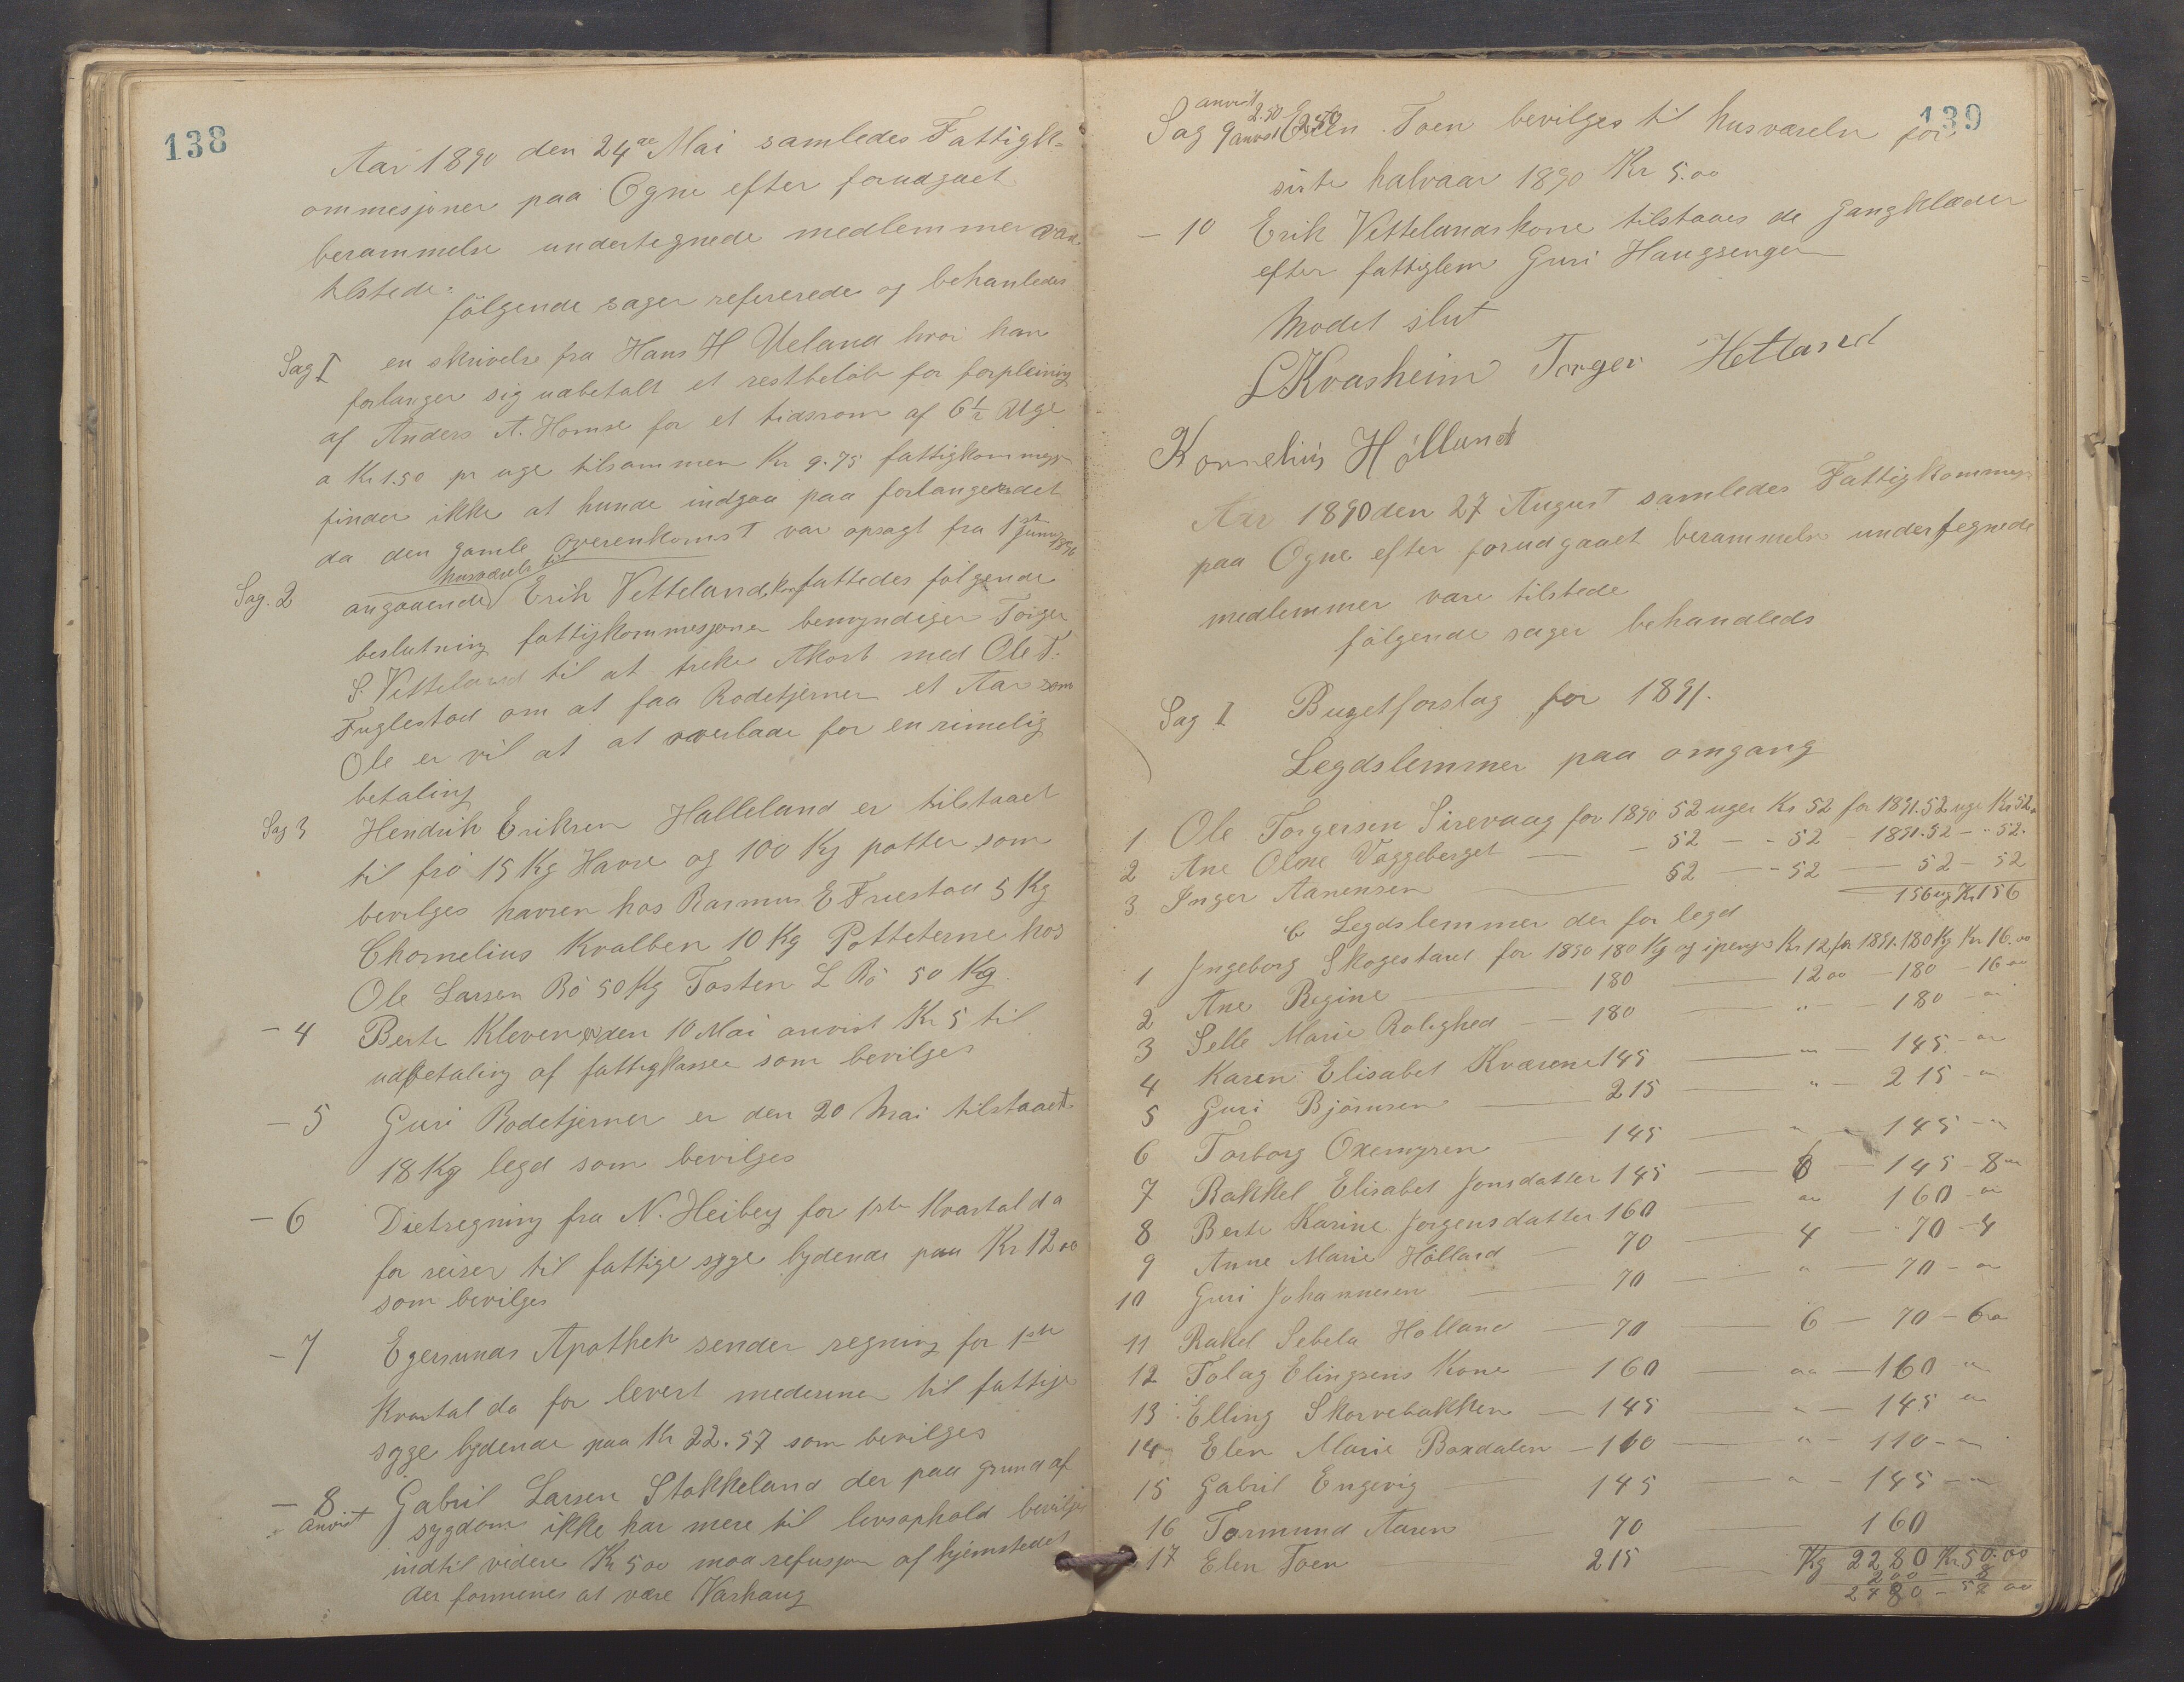 138
Aar 1890 den 24de Mai samledes Fattigk-
ommesjonen paa Ogne efter forudgaaet
berammelse undertegnede medlemmer var
tilstede.
følgende sager refererede og behanledes
Sag I en skrivelse fra Hans H Ueland hvor han
forlanger sig udbetalt et restbeløb for forpleining
af Anders A. Homse for et tidsrom af 6½ Uge
a Kr 1.50 pr uge tilsammen Kr 9.75 fattigkommesj
finder ikke at kunde indgaa paa forlangendet
da den gamle overenkomst var opsagt fra 1st Januar 1890
Sag. 2 angaaende husværelse til Erik Vettelands kone fattedes følgende
beslutning fattigkommesjonen bemyndiger Torger
S. Vetteland til at treke Akort med Ole T.
Fuglestad om at faa Rodetjernet et Aar som
Ole er vil at at overlade for en rimelig
betaling
Sag 3 Hendrik Eriksen Halleland er tilstaaet
til frø 15 Kg Havre og 100 Kg potter som
bevilges havren hos Rasmus E Fruestad 5 Kg
Chornelius Kvalben 10 Kg Potteterne hos
Ole Larsen Bø 50 Kg Tosten L Bø 50 Kg.
- 4 Berte Kleven er den 10 Mai anvist Kr 5 til
udbetaling af fattigkassen som bevilges
- 5 Guri Rodetjernet er den 20 Mai tilstaaet
18 Kg legd som bevilges
- 6 Dietregning fra N. Heiberg for 1ste Kvartal da
for reiser til fattige syge lydende paa Kr 12 00
som bevilges
- 7 Egersunds Apothek sender regning for 1ste
Kvartal da for levert medesiner til fattige
syge lydende paa Kr 22.57 som bevilges
- 8 anvist Gabril Larsen Stokkeland der paa grund af
sygdom ikke har mere til livsophold bevilges
indtil videre Kr 5 00 moa refusjon af hjemstedet
der formenes at være Varhaug
139
anvist 2.50
Sag 9 anvist 2.50 Elen Toen bevilges til husværeln for
siste halvaar 1890 Kr 5.00
- 10 Erik Vettelands kone tilstaaes de gangklæder
efter fattiglem Guri Haugsengen
Modet slut
L Kvasheim Torger Hetland
Kornelius Hølland
Aar 1890 den 27 August samledes Fattigkommesj
paa Ogne efter forudgaaet berammelse undertegnede
medlemmer vare tilstede
følgende sager behandleds
Sag I Bugetforslag for 1891.
Legdslemmer paa omgang
1 Ole Torgersen Sirevaag for 1890 52 uger Kr 52 for 1891. 52 uge Kr 52
2 Ane Olene Vaggeberget — 52 - - 52 - 1891. 52 - - 52.
3 Inger Aanensen — 52 - - 52 — 52 - 52
156 ug Kr 156
b Legdslemmer der for legd
1 Ingeborg Skogestaed for 1890 180 Kg og i penge Kr 12 for 1891. 180 Kg Kr 16.00
2 Ane Regine — 180 — 12 00 - 180 - 16 00
3 Selle Marie Rolighed — 180 — „ — 180 - „
4 Karen Elisabet Kværene 145 — „ — 145 - „
5 Guri Bjørnsen — 215 — „ - 215 - „
6 Torborg Oxemyren — 145 — „ - 145 - „
7 Rakkel Elisabet Jonsdatter 145 — 6 — 145 - 8 „
8 Berte Karine Jorgensdatter 160 — „ 160 - „
9 Anne Marie Hølland — 70 — 4 - 70 - 4
10 Guri Johannesen — 70 — „ — 70 - „
11 Rakel Sebela Hølland — 70 — 6 - 70 - 6 „
12 Tolag Elingsens Kone — 160 — „ — 160 „
13 Elling Skorvebakken — 145 — „ - 145 „
14 Elen Marie Boxdalen — 110 — „ - 110 - „
15 Gabril Engevig — 145 — „ - 145 - „
16 Tormund Aaren — 70 — 160
17 Elen Toen — 215 — Kg 2280 Kr 50.00
200 - 8
2480 - 58 00